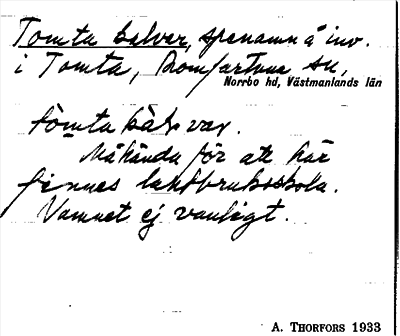 Tomta kalvar, spenamn å inv.
i Tomta, Romfartuna sn,
Norrbo hd, Västmanlands län
tòmta kàl var.
Måhända för att här
finnes lantbruksskola.
Namnet ej vanligt.
A. THORFORS 1933